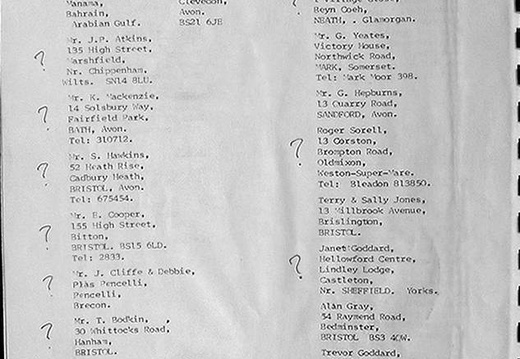 Manama,
Bahrain,
Arabian Gulf.
Clevedon,
Avon.
BS21 6JE
?
Mr. J.P. Atkins,
135 High Street,
Marshfield,
Nr. Chippenham,
Wilts. SN14 8LU.
?
Mr. K. Mackenzie,
14 Solsbury Way,
Fairfield Park,
BATH, Avon.
Tel: 310712.
?
Mr. S. Hawkins,
52 Heath Rise,
Cadbury Heath,
BRISTOL, Avon.
Tel: 675454.
?
Mr. E. Cooper,
155 High Street,
Bitton,
BRISTOL. BS15 6LD.
Tel: 2833.
?
Mr. J. Cliffe & Debbie,
Plas Pencelli,
Pencelli,
Brecon.
?
Mr. T. Bodkin,
30 Whittocks Road,
Hanham,
BRISTOL.
Beyn Coeh,
NEATH, . Glamorgan.
?
Mr. G. Yeates,
Victory House,
Northwick Road,
MARK, Somerset.
Tel: Mark Moor 398.
Mr. G. Hepburns,
13 Quarry Road,
SANDFORD, Avon.
?
Roger Sorell,
13 Corston,
Brompton Road,
Oldmixon,
Weston-Super-Mare.
Tel: Bleadon 813850.
Terry & Sally Jones,
13 Millbrook Avenue,
Brislington,
BRISTOL.
?
Janet Goddard,
Hellowford Centre,
Lindley Lodge,
Castleton,
Nr. SHEFFIELD. Yorks.
Alan Gray,
54 Raymend Road,
Bedminster,
BRISTOL BS3 4QW.
Trevor Goddard,